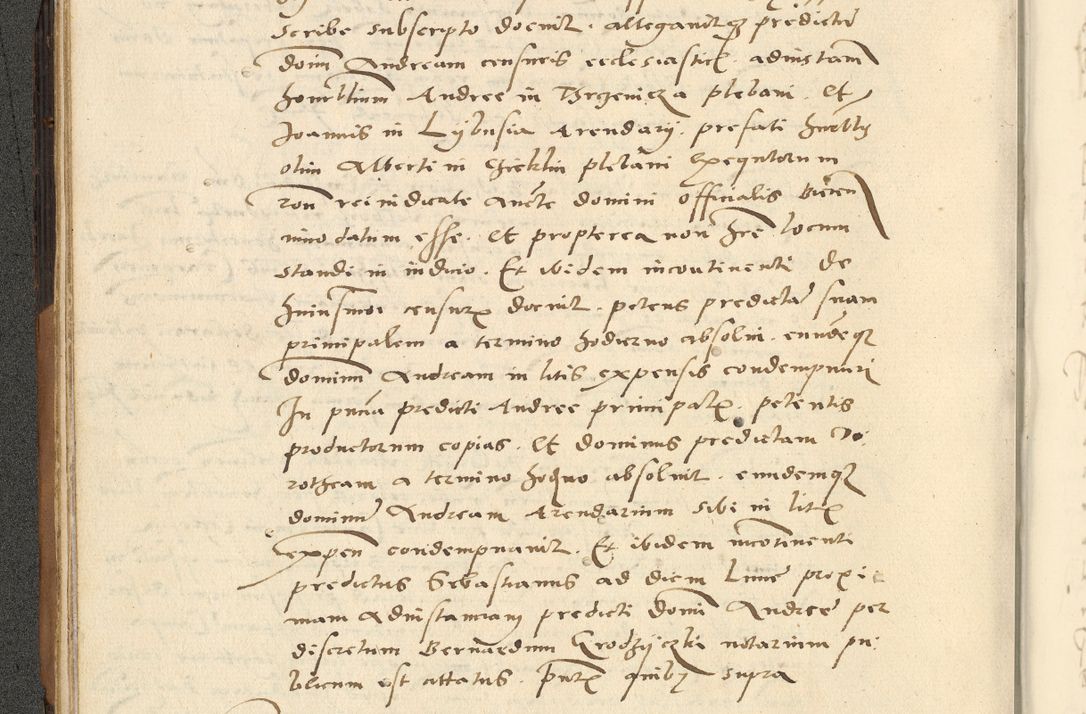 scribe subscripto docuit. allegavitq predictu
dom Andream censuris ecclesiastic. adinstam
honorabilium Andree in Brzeniczka plebani. Et
Joannis in Lybusia Arendarij. prefati
olim Alberti in plebani exequtorum
ron rei indicate aucte domini officialis
mino datum esse. Et propterea non hre locum
standi in iudicio. Et ibidem incontinenti de
huiusmoi censur docuit. petens predicta suam
principalem a termino hodierno absolvi. eundeq
dominum Andream in litis expensis condempnari
In pntia predicti Andree principal. petentis
productorum copias. Et dominus predictam Do
rotheam a termino hodierno absolvit. eundemq
dominum Andream Arendarium sibi in litis
expen condempnavit. Et ibidem incontinenti
predictus Sebastianus ad diem Lune proxi
mam adinstanciam predicti domi Andree per
discretum Bernardum Grodzyczki notarium pu
blicum est citatus. pntibus quibus supra